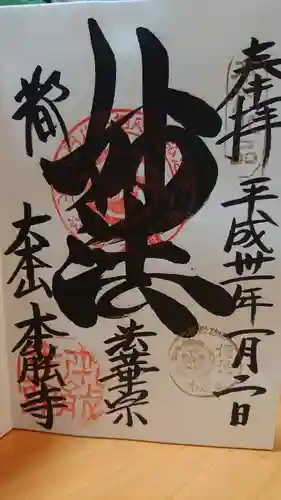 奉拝
平成卅一年一月二日
妙法
法華宗
都
大本山本能寺